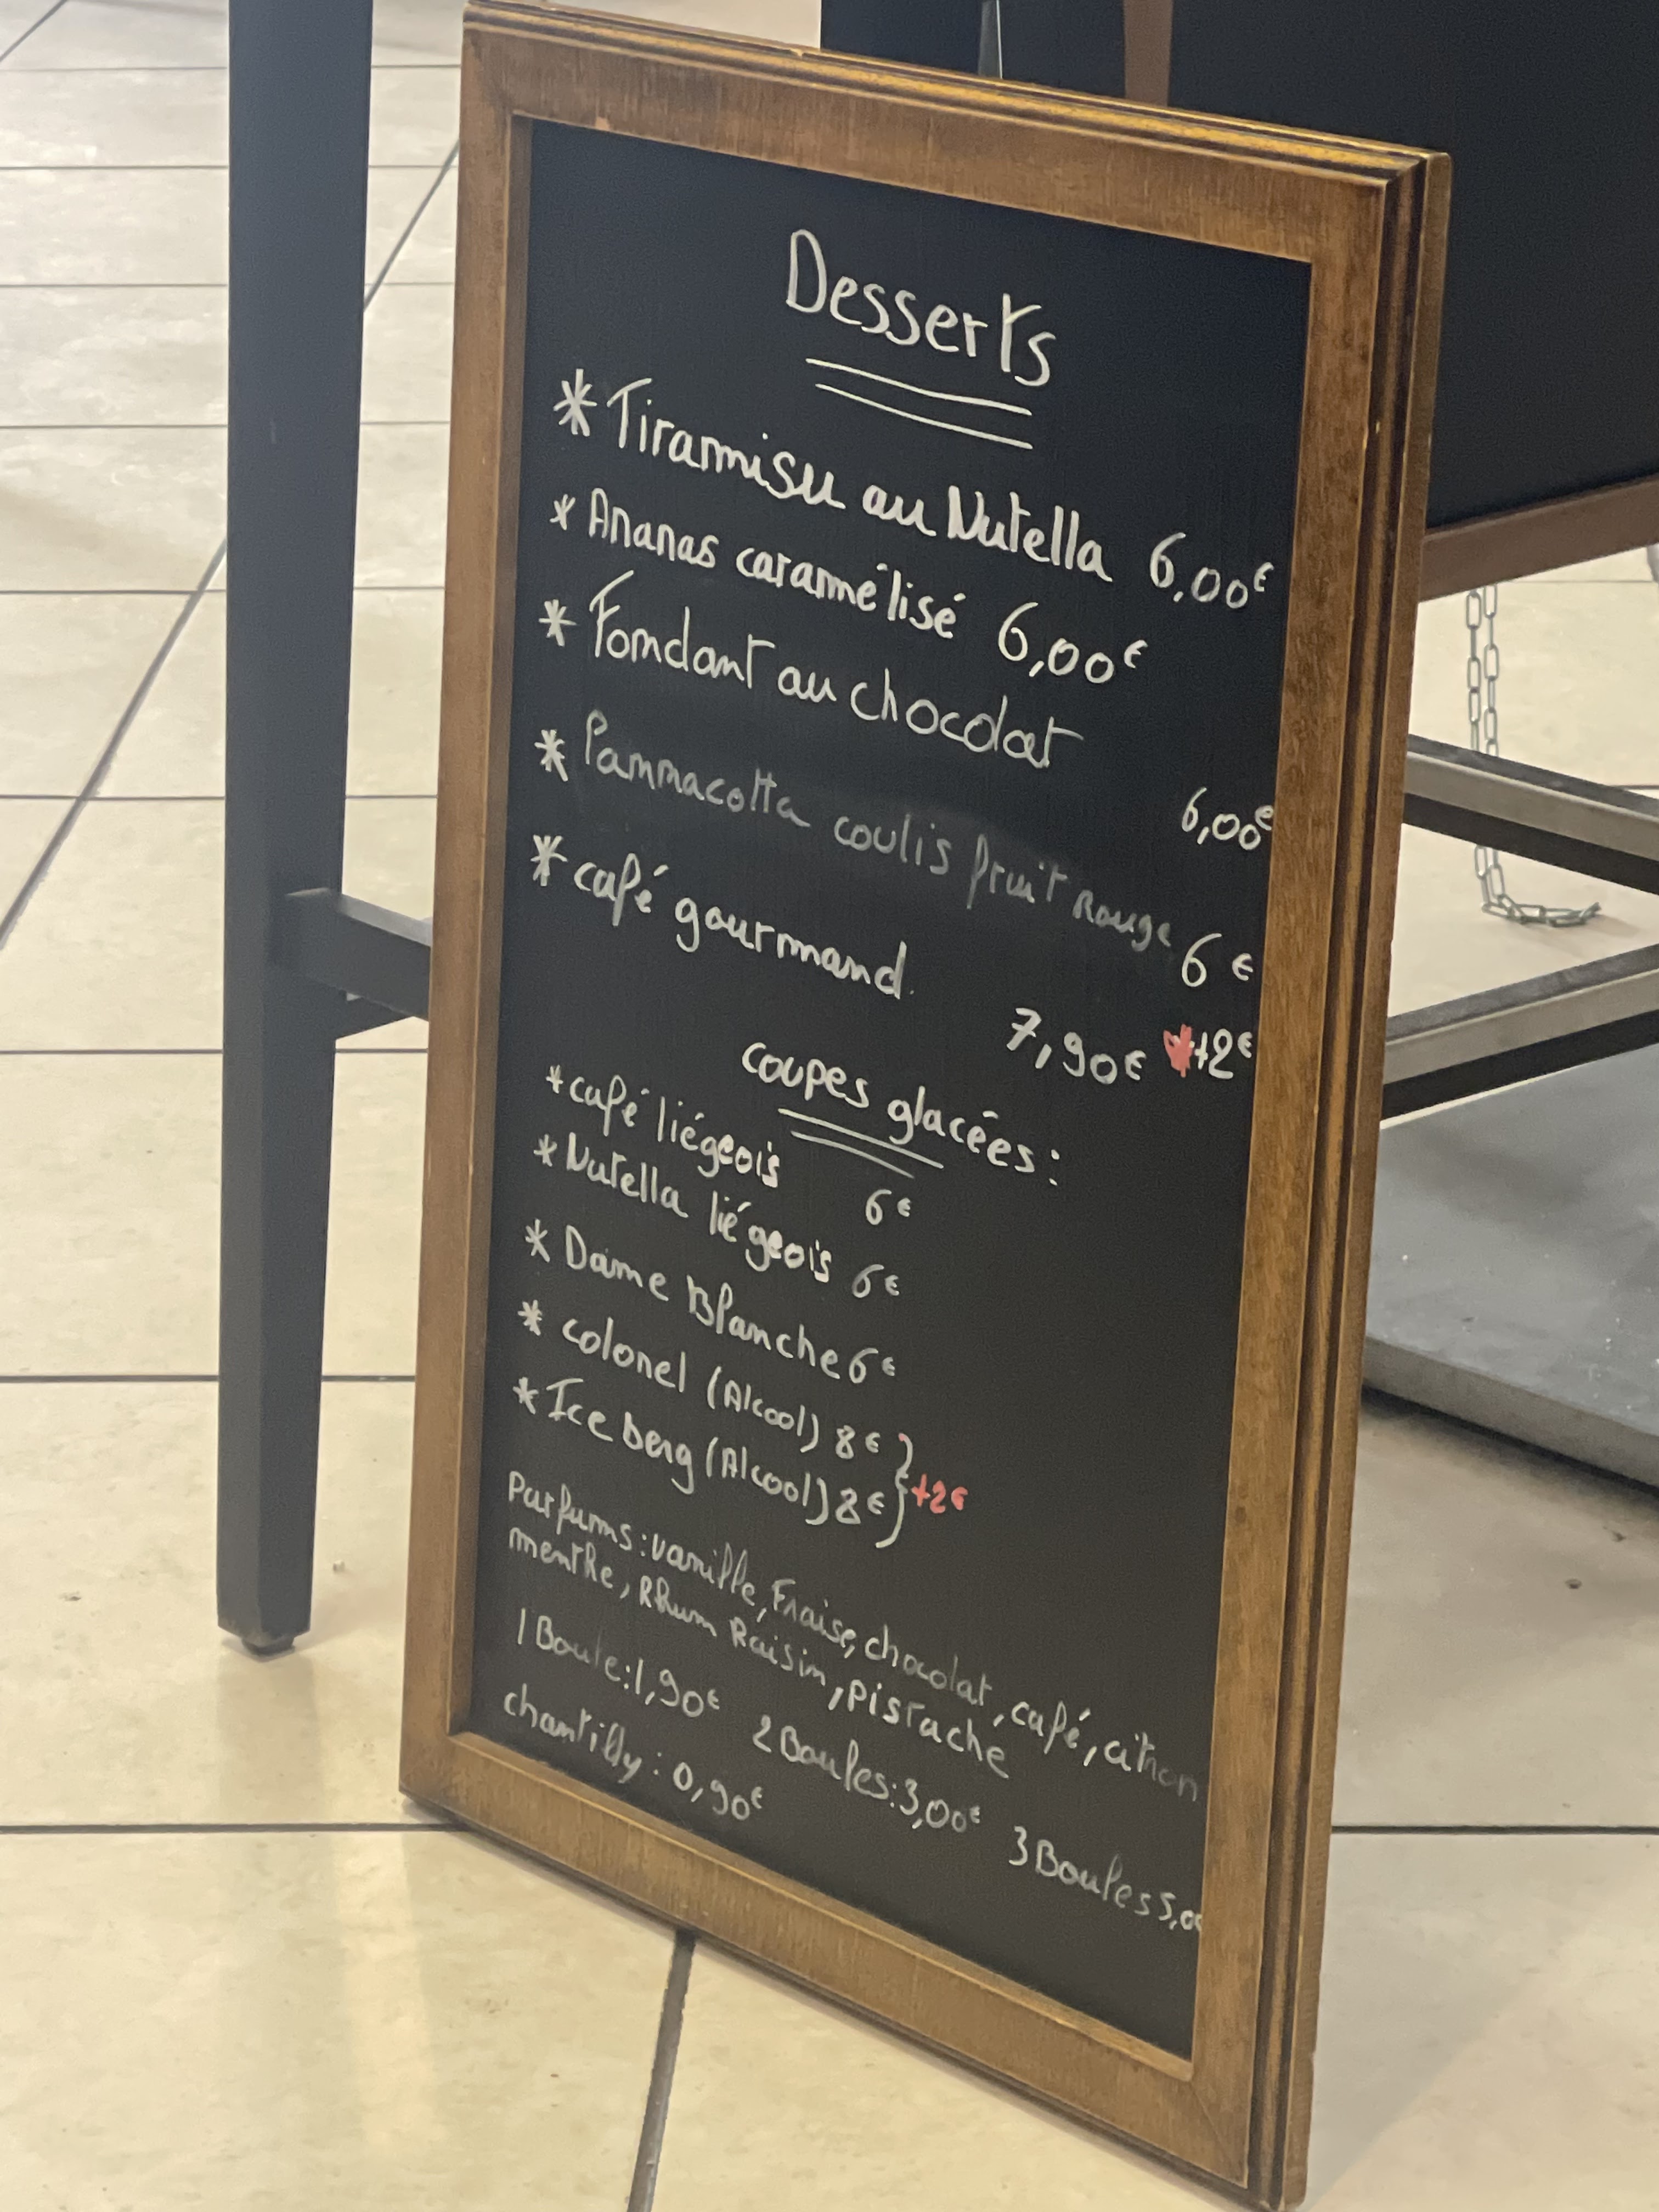 Desserts
* Tiramisu au Nutella 6,00€
* Ananas caramélisé 6,00€
* Fondant au chocolat
6,00€
* Pannacotta coulis fruit rouge
6 €
* café gourmand.
7,90€ +2€
coupes glacées :
* café liégeois 6€
* Nutella liégeois 6€
* Dame Blanche 6€
* colonel (Alcool) 8€ }
* Ice berg (Alcool) 8€ } +2€
Parfums : vanille, Fraise, chocolat, café, citron
menthe, Rhum Raisin, pistache
1 Boule : 1,90€ 2 Boules : 3,00€ 3 Boules 5,00
chantilly : 0,90€